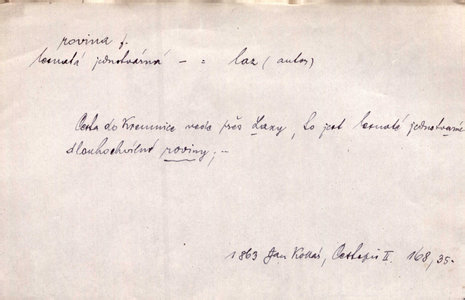 rovina f.
lesnatá jednotvárná – = laz (autor)
Cesta do Kremnice vede přes Lazy, to jest lesnaté jednotvarné
dlouhochvilné roviny; –
1863 Jan Kollár, Cestopis II 168, 35-